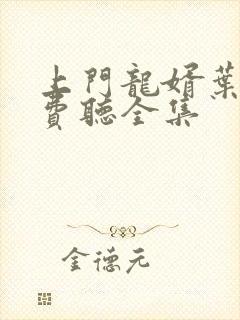 上門龍婿葉
費聽全集
金德元